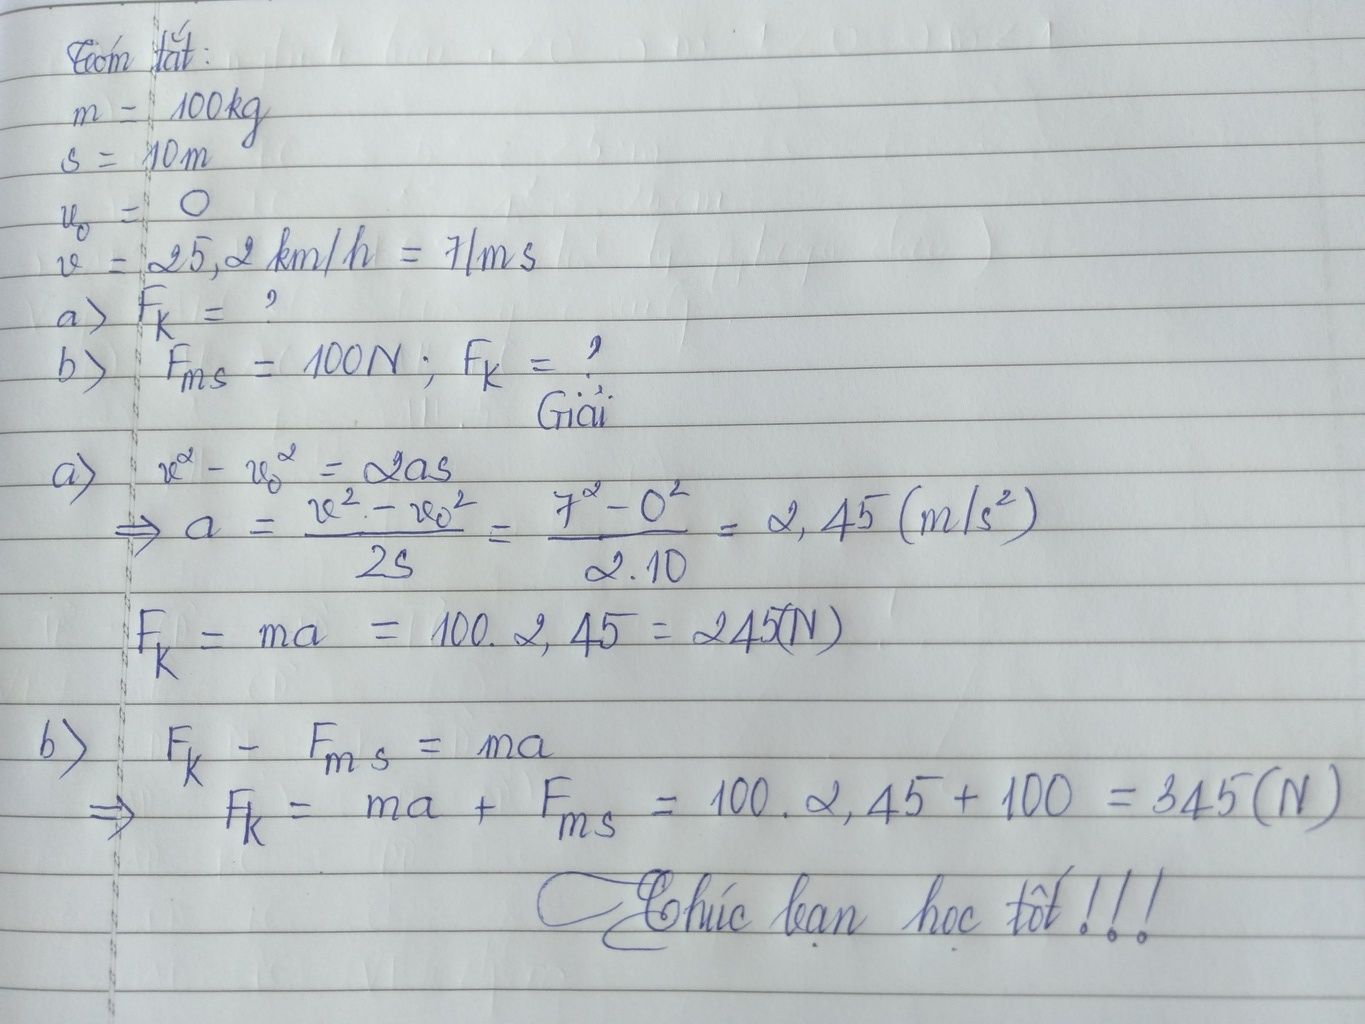 Tóm tắt:
m = 100kg
s = 10m
v₀ = 0
v = 25,2 km/h = 7/ms
a) F_K = ?
b) F_ms = 100N ; F_K = ?
Giải
a) v² - v₀² = 2as
⇒ a = (v² - v₀²)/(2s) = (7² - 0²)/(2.10) = 2,45 (m/s²)
F_K = ma = 100. 2,45 = 245(N)
b) F_K - F_ms = ma
⇒ F_K = ma + F_ms = 100. 2,45 + 100 = 345(N)
Chúc bạn học tốt!!!